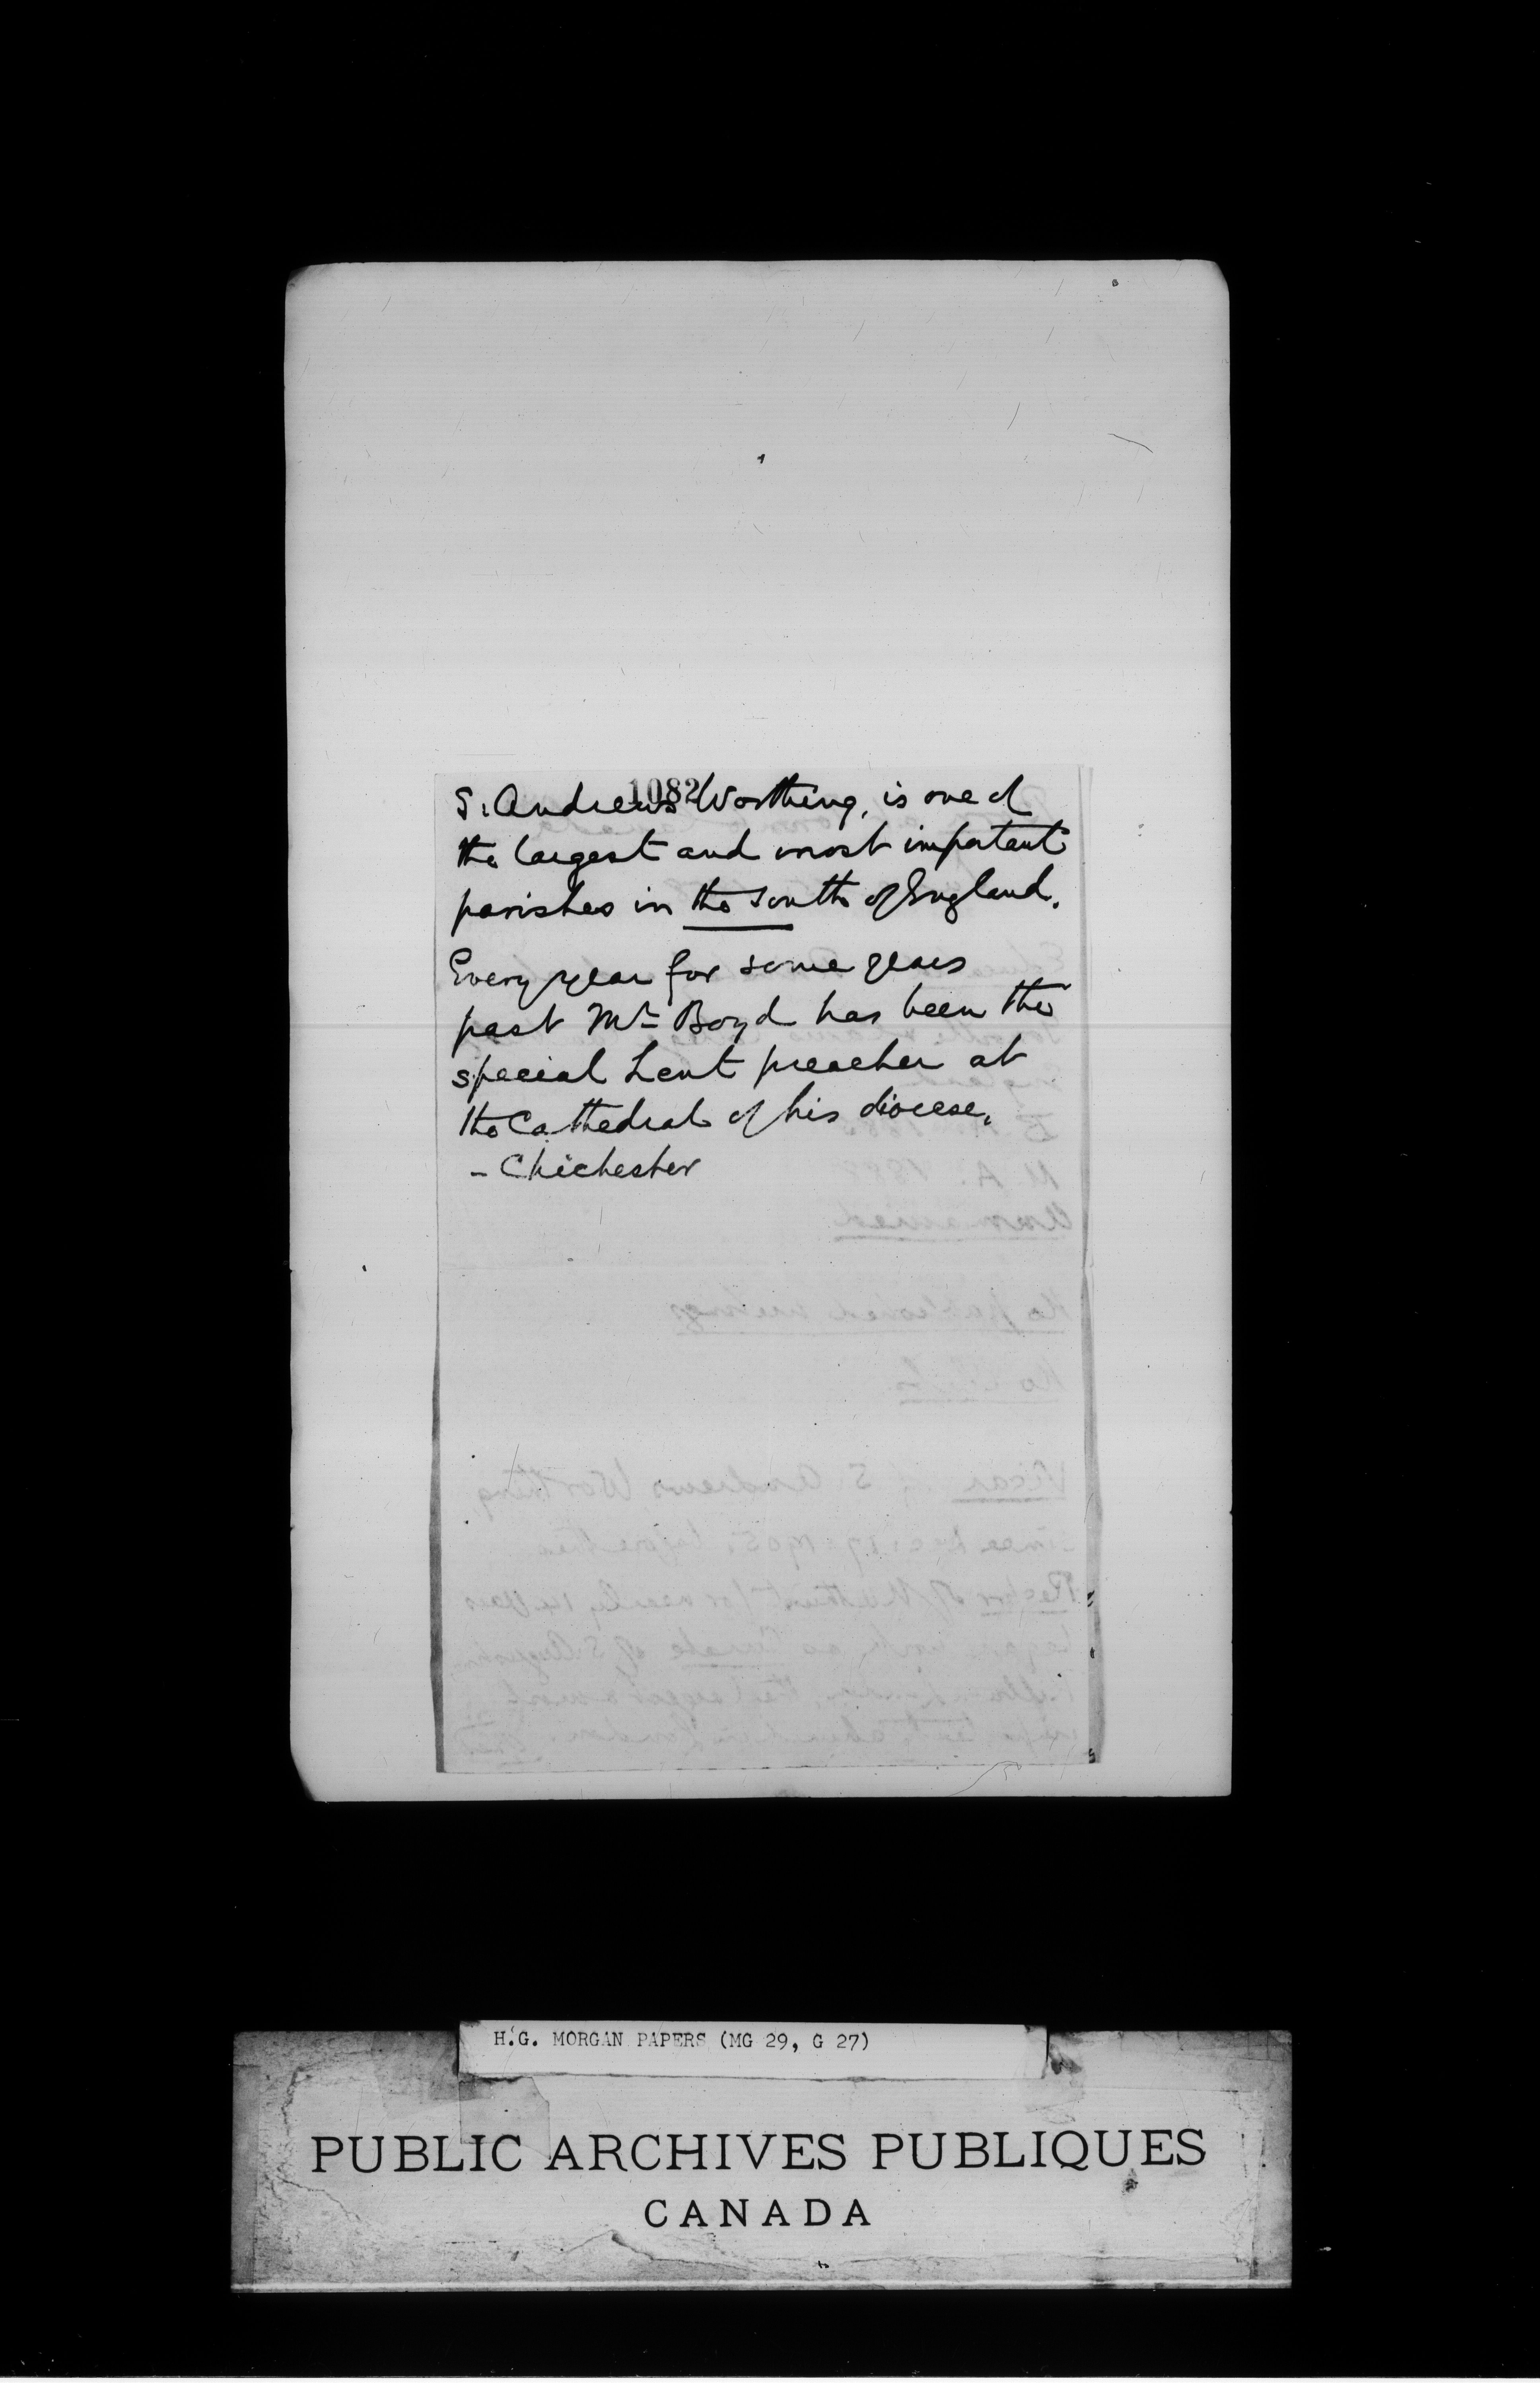 1082
S. Andrews Worthing, is one of
the largest and most important
parishes in the South of England.
Every year for some years
past Mr Boyd has been the
special Lent preacher at
the Cathedral of his diocese.
- Chichester
H.G. MORGAN PAPERS (MG 29, G 27)
PUBLIC ARCHIVES PUBLIQUES
CANADA